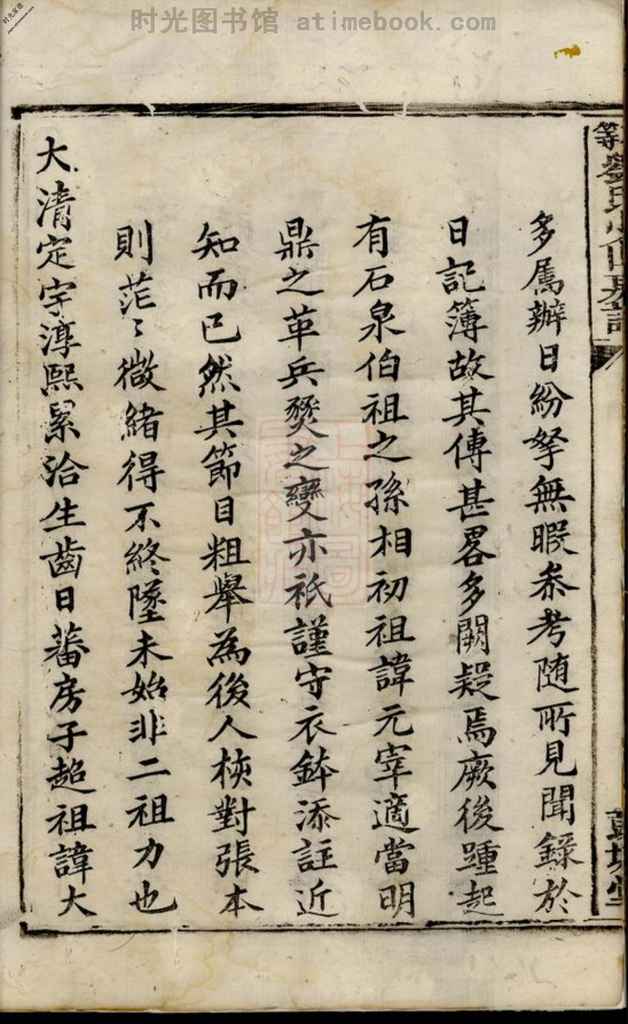 时光图书馆 atimebook.com
多屬辦日紛拏無暇叅考随所見聞錄於
日記簿故其傳甚畧多闕疑焉厥後踵起
有石泉伯祖之孫相初祖諱元宰適當明
鼎之革兵燹之變亦祇謹守衣鉢添註近
知而已然其節目粗舉為後人挾對張本
則茫〻微緒得不終墜未始非二祖力也
大清定宇淳熙累洽生齒日蕃房子超祖諱大